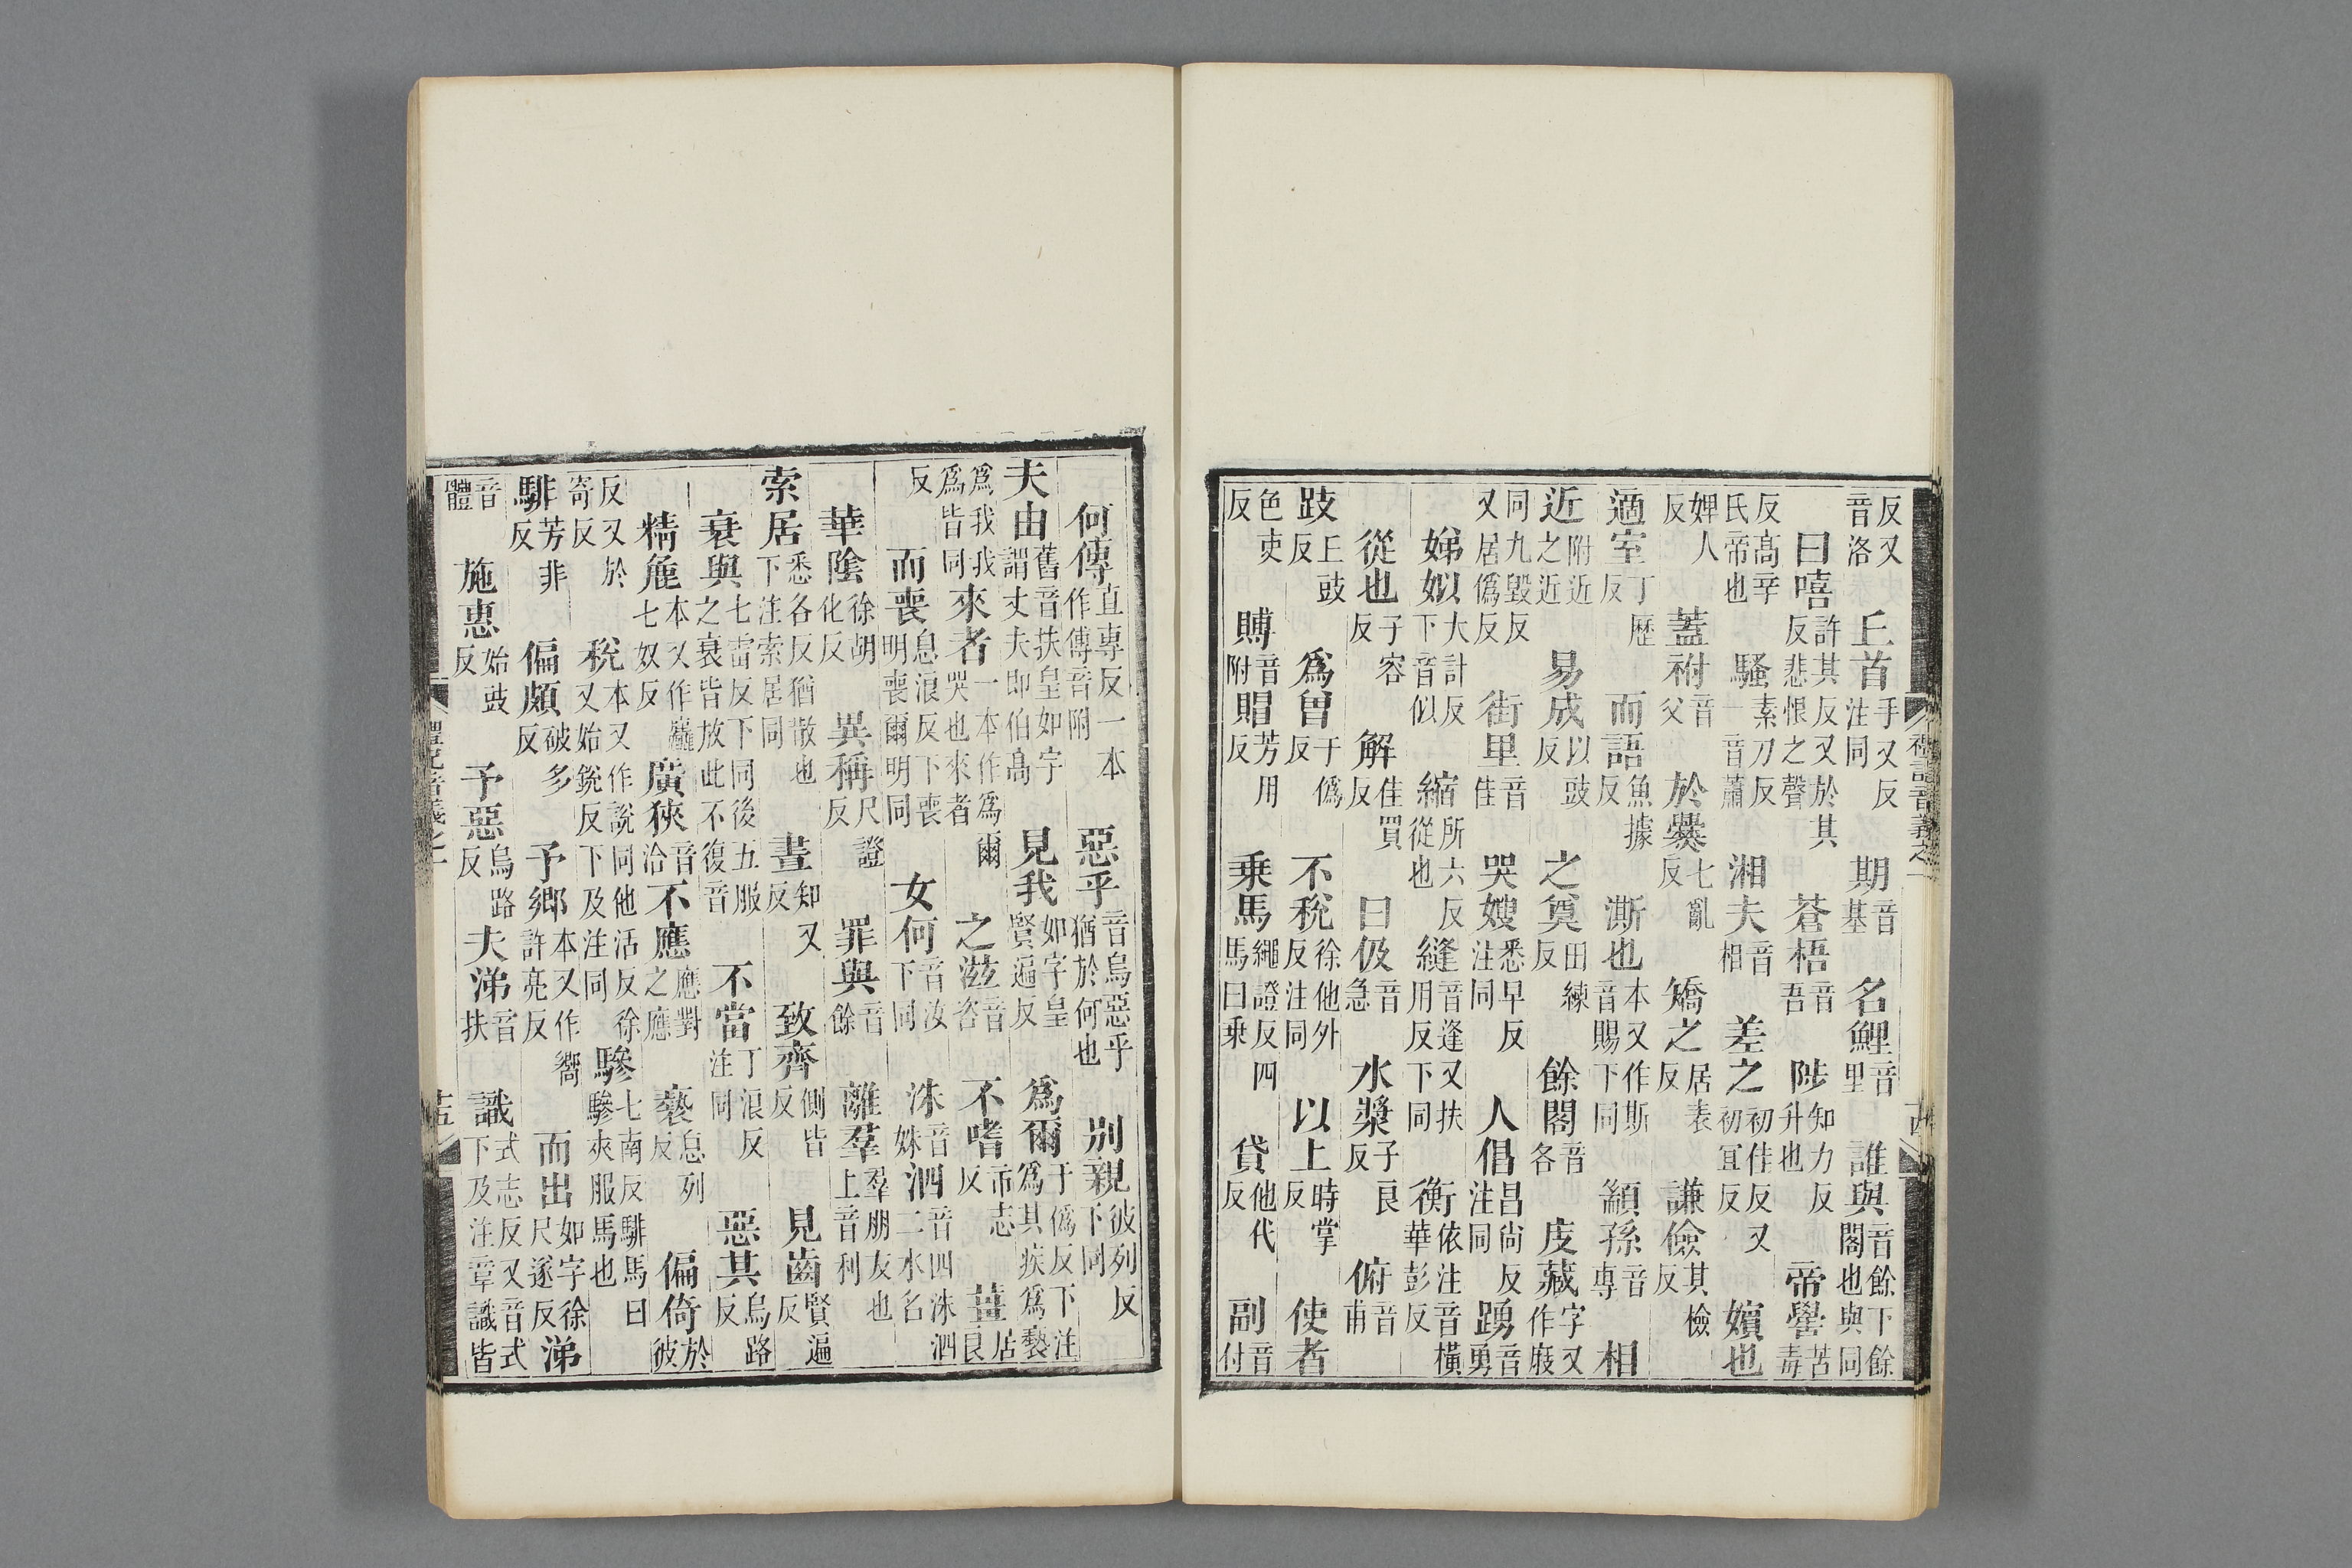 禮記音義之一
反又音洛丘首手又反注同期音基名鯉音里誰與音餘下餘閣也與同
曰嘻許其反又於其反悲恨之聲蒼梧音吾陟知力反升也帝嚳苦毒
反高辛氏帝也騷素刀反一音蕭湘夫音相差之初佳反又初宜反嬪也
婢人反蓋祔音父於爨七亂反矯之居表反謙儉其檢反
適室丁歷反而語魚據反澌也本又作斯音賜下同顓孫音專相
近附近之近易成以豉反之奠田練反餘閣音各庋藏字又作庪
同九毀反又居僞反街里音佳哭嫂悉早反注同人倡昌尚反注同踴音勇
娣姒大計反下音似縮所六反從也縫音逢又扶用反下同衡依注音橫華彭反
從也子容反解佳買反曰伋音急水漿子良反俯音甫
跂丘豉反爲曾于僞反不稅徐他外反注同以上時掌反使者
色吏反賻音附賵芳用反乗馬繩證反四馬曰乗貸他代反副音付
何傳直専反一本作傅音附惡乎音烏惡乎猶於何也别親彼列反下同
夫由舊音扶皇如字謂丈夫即伯高見我如字皇賢遍反爲爾于僞反下注爲其疾爲褻
爲我我爲皆同來者一本作爲爾哭也來者之滋音咨不嗜市志反薑居良
反而喪息浪反下喪明喪爾明同女何音汝下同洙音姝泗音四洙泗二水名
華陰徐胡化反異稱尺證反罪與音餘離羣羣朋友也上音利
索居悉各反猶散也下注索居同晝知又反致齊側皆反見齒賢遍反
衰與七雷反下同後五服之衰皆放此不復音不當丁浪反注同惡其烏路反
精麄本又作麤七奴反廣狹音洽不應應對之應褻息列反偏倚於彼
反又於寄反稅本又作說同他活反徐又始銳反下及注同驂七南反騑馬曰驂夾服馬也
騑芳非反偏頗破多反予鄉本又作嚮許亮反而出如字徐尺遂反涕
音體施惠始豉反予惡烏路反夫涕音扶識式志反又音式下及注章識皆
禮記音義之一